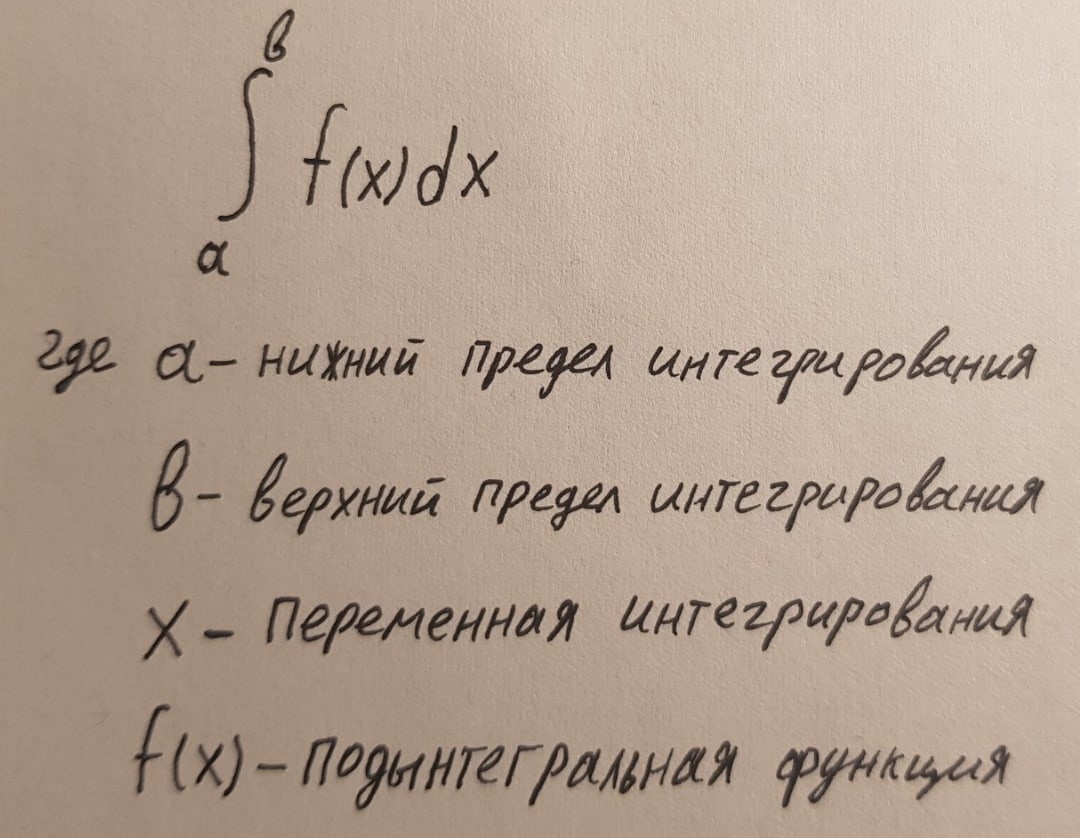 ∫ₐᵇ f(x)dx
где a – нижний предел интегрирования
b – верхний предел интегрирования
x – переменная интегрирования
f(x) – подынтегральная функция